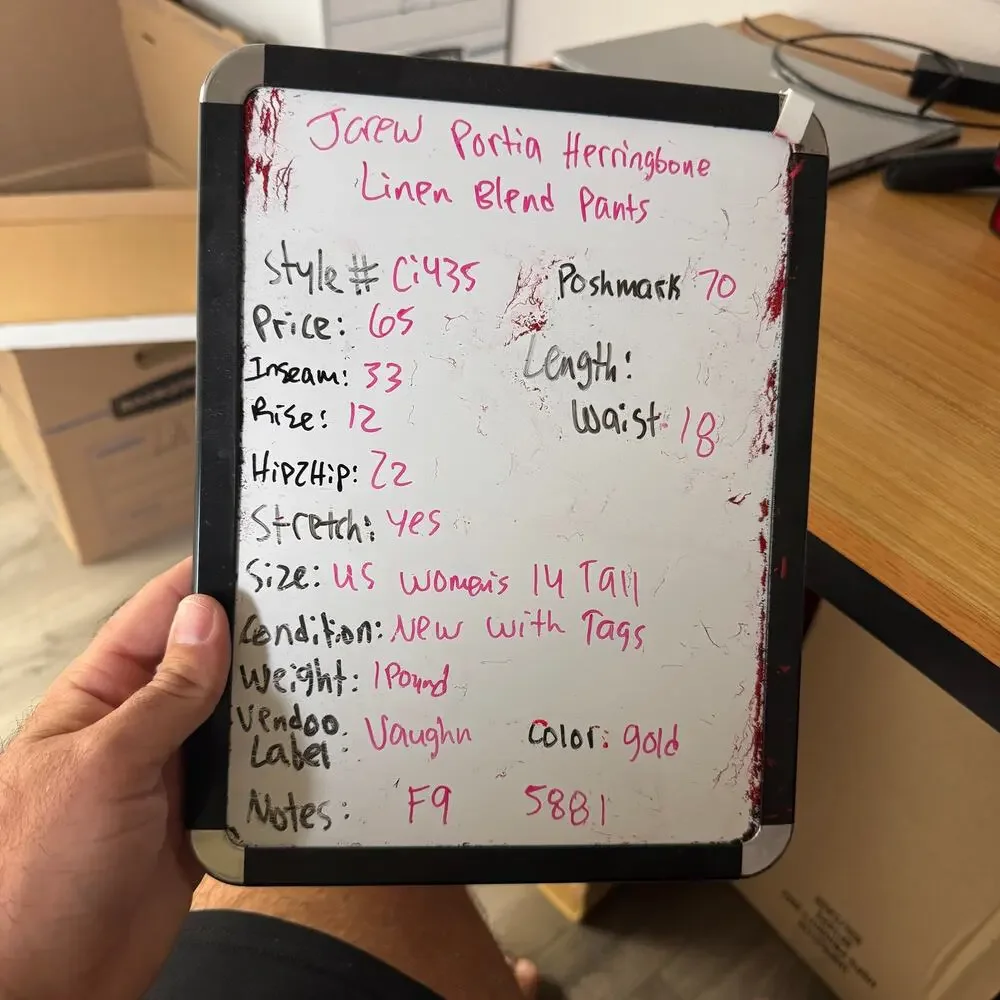 Jcrew Portia Herringbone
Linen Blend Pants
Style# Ci435 Poshmark 70
Price: 65
Inseam: 33 Length:
Rise: 12 Waist 18
Hip2Hip: 22
Stretch: yes
Size: US Women's 14 Tall
Condition: New with Tags
Weight: 1 Pound
Vendoo
Label: Vaughn Color: gold
Notes: F9 5881